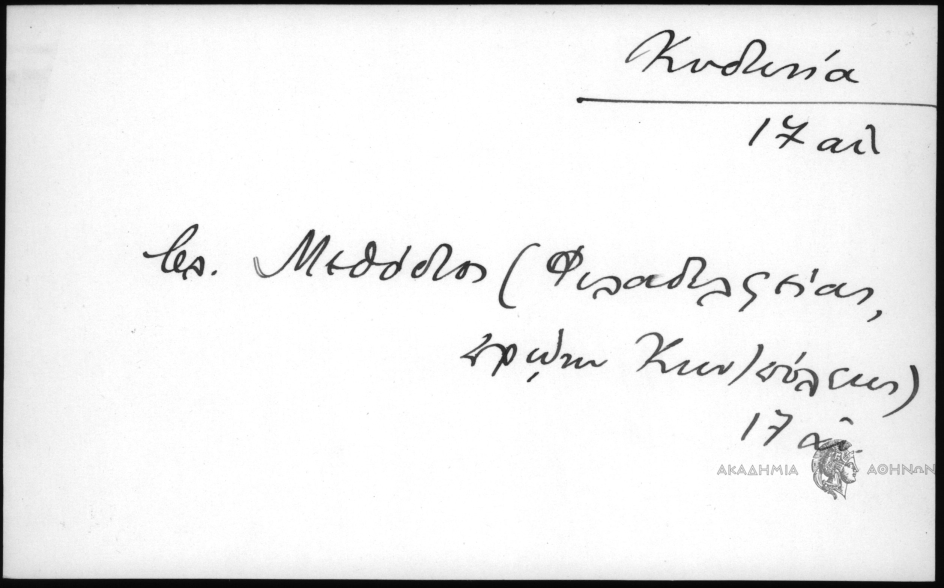 Κυδωνία
17 αἰ
βλ. Μεθόδιος (Φιλαδελφείας,
πρώην Κων)πόλεως)
17 αἰ.
ΑΚΑΔΗΜΙΑ ΑΘΗΝΩΝ